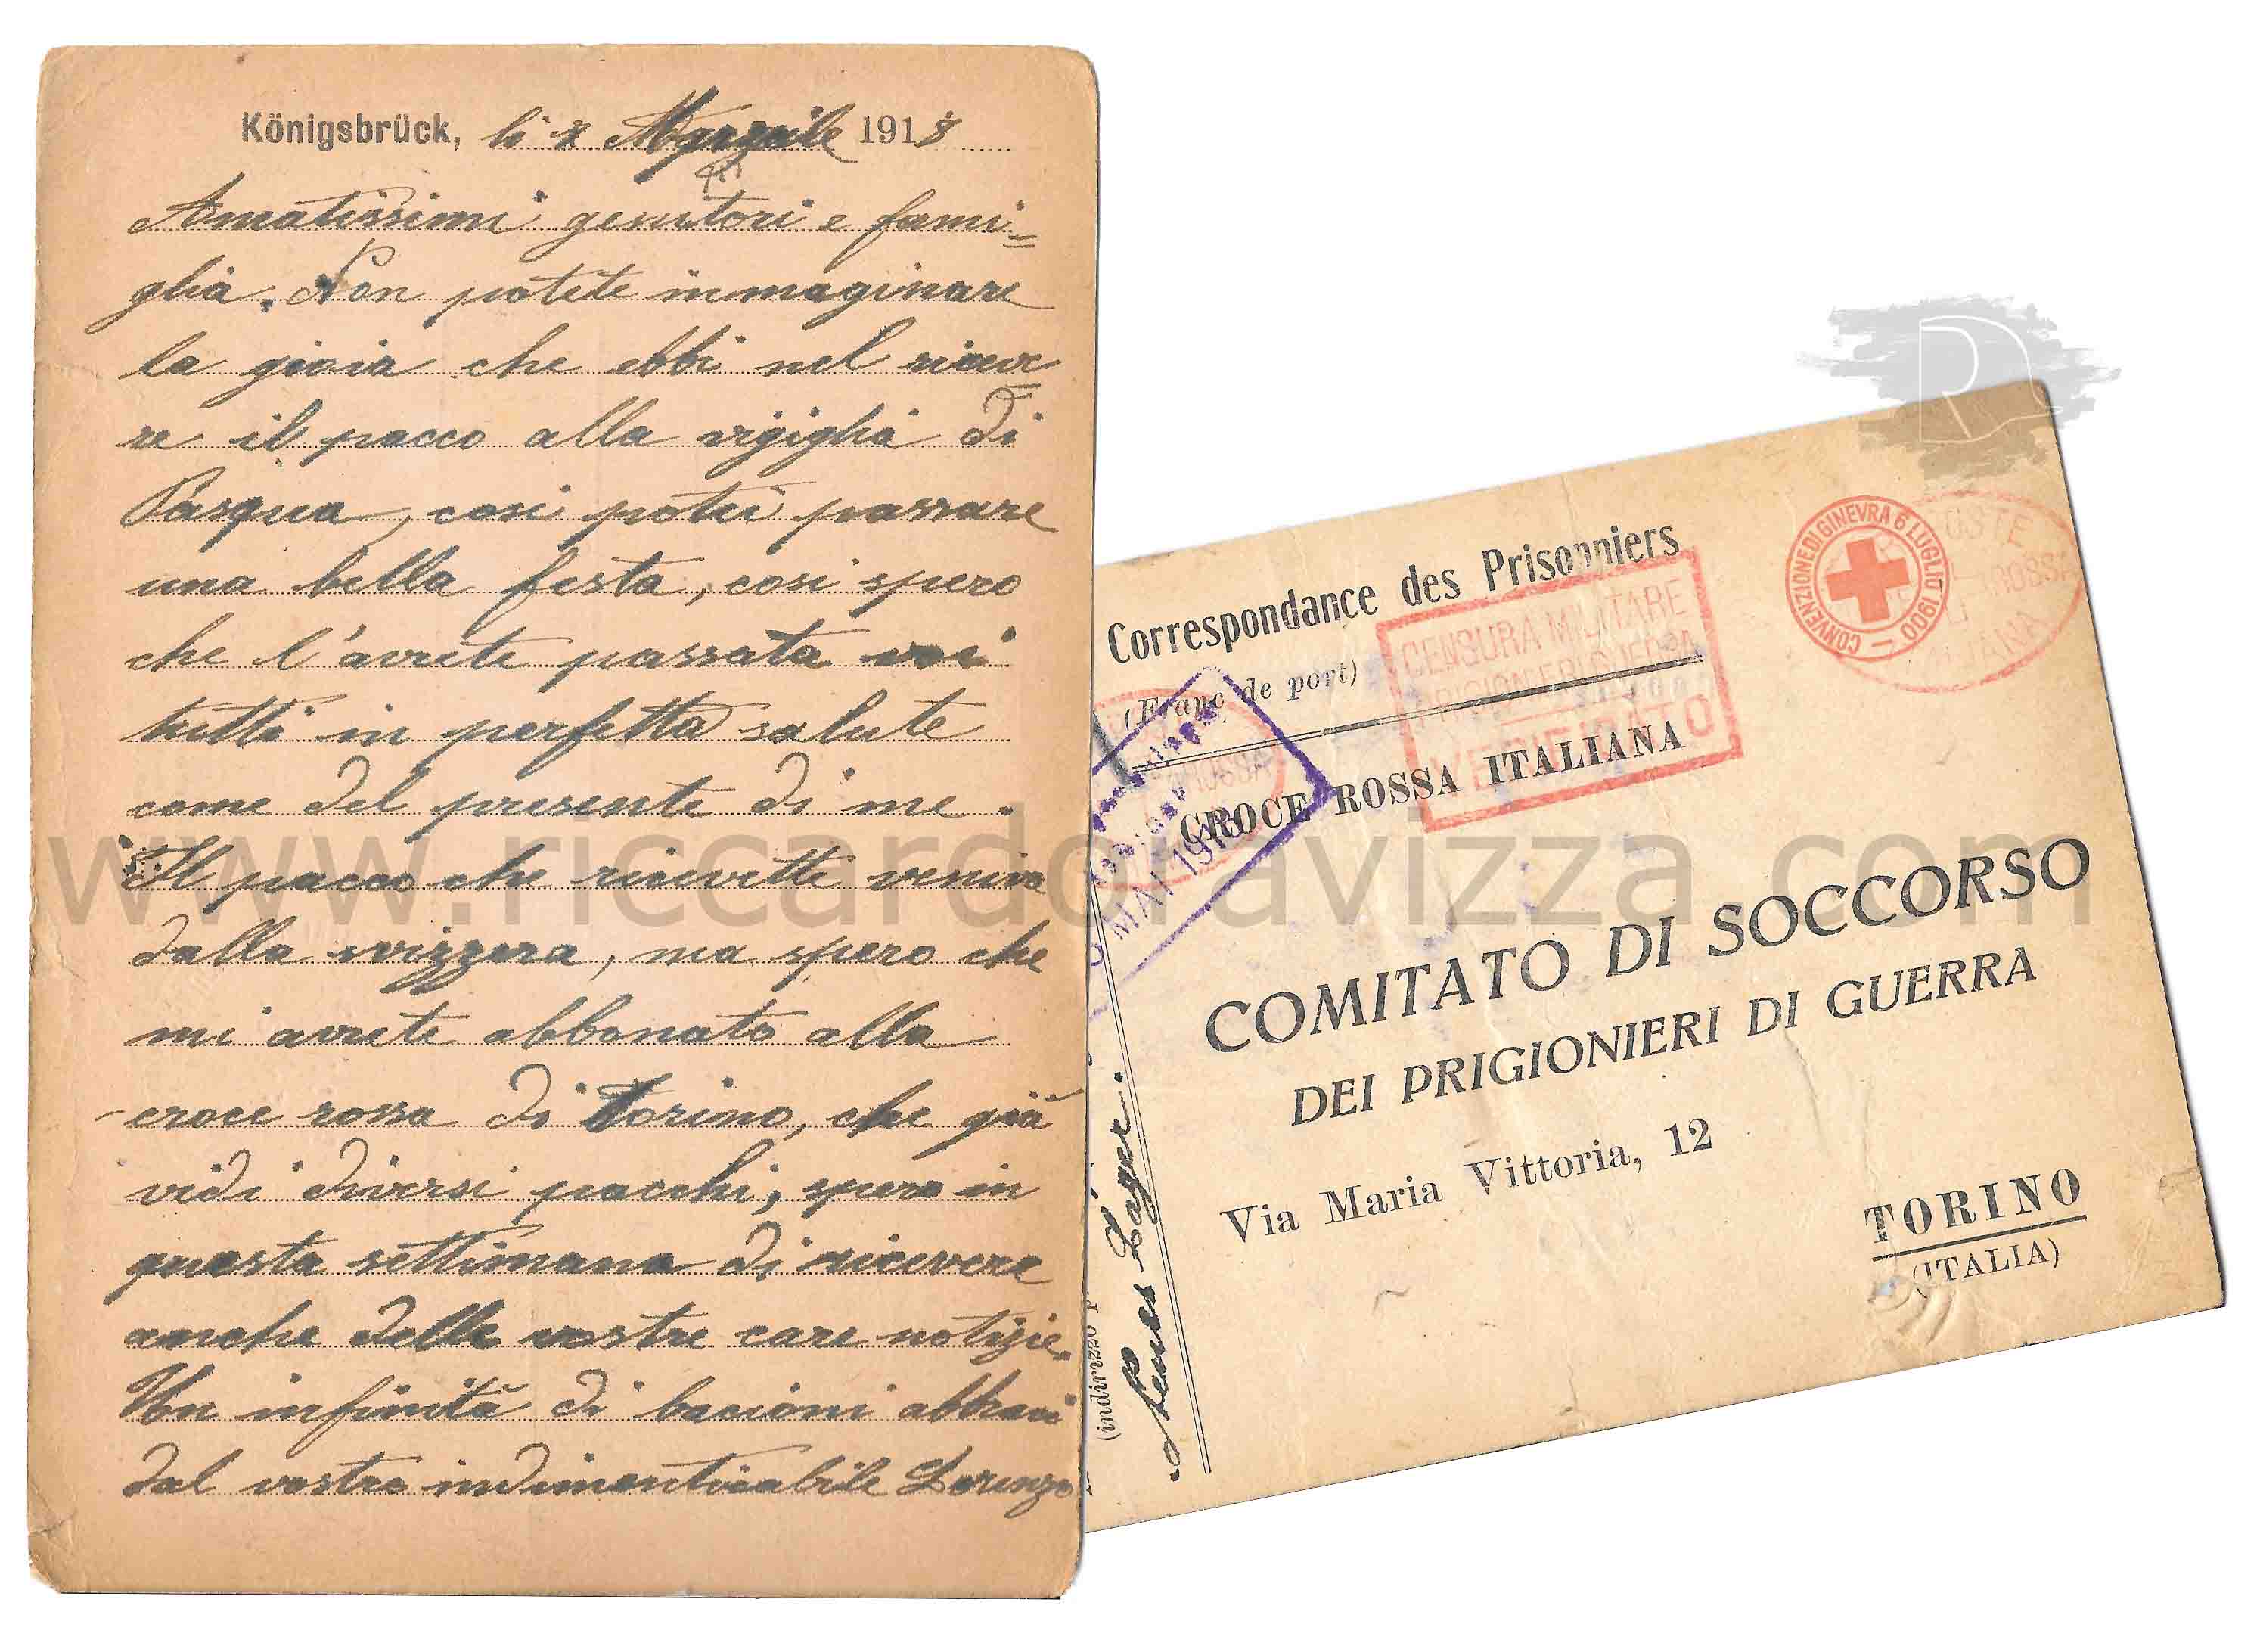 Königsbrück, li 2 Aprile 1918
Amatissimi genitori e fami=
glia. Non potete immaginare
la gioia che ebbi nel riceve
re il pacco alla vigiglia di
Pasqua, cosi potei passare
una bella festa, cosi spero
che l'avrete passata voi
tutti in perfetta salute
come del presente di me.
Il pacco che ricevetti veniva
dalla svizzera, ma spero che
mi avrete abbonato alla
croce rossa di Torino, che già
vidi diversi pacchi, spero in
questa settimana di ricevere
anche delle vostre care notizie.
Un infinità di bacioni abbraci
dal vostro indimenticabile Lorenzo
Correspondance des Prisonniers
(Franc de port)
CENSURA MILITARE
PRIGIONIERI GUERRA
VERIFICATO
CONVENZIONE DI GINEVRA 6 LUGLIO 1906
POSTE
ROSSA
ITALIANA
ROSSA
MAI 1918
CROCE ROSSA ITALIANA
COMITATO DI SOCCORSO
DEI PRIGIONIERI DI GUERRA
Via Maria Vittoria, 12
TORINO
(ITALIA)
(indirizzo
Neues Lager.
R
www.riccardoravizza.com